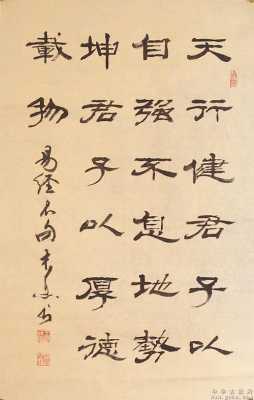 天行健君子以
自强不息地勢
坤君子以厚德
載物
易經名句